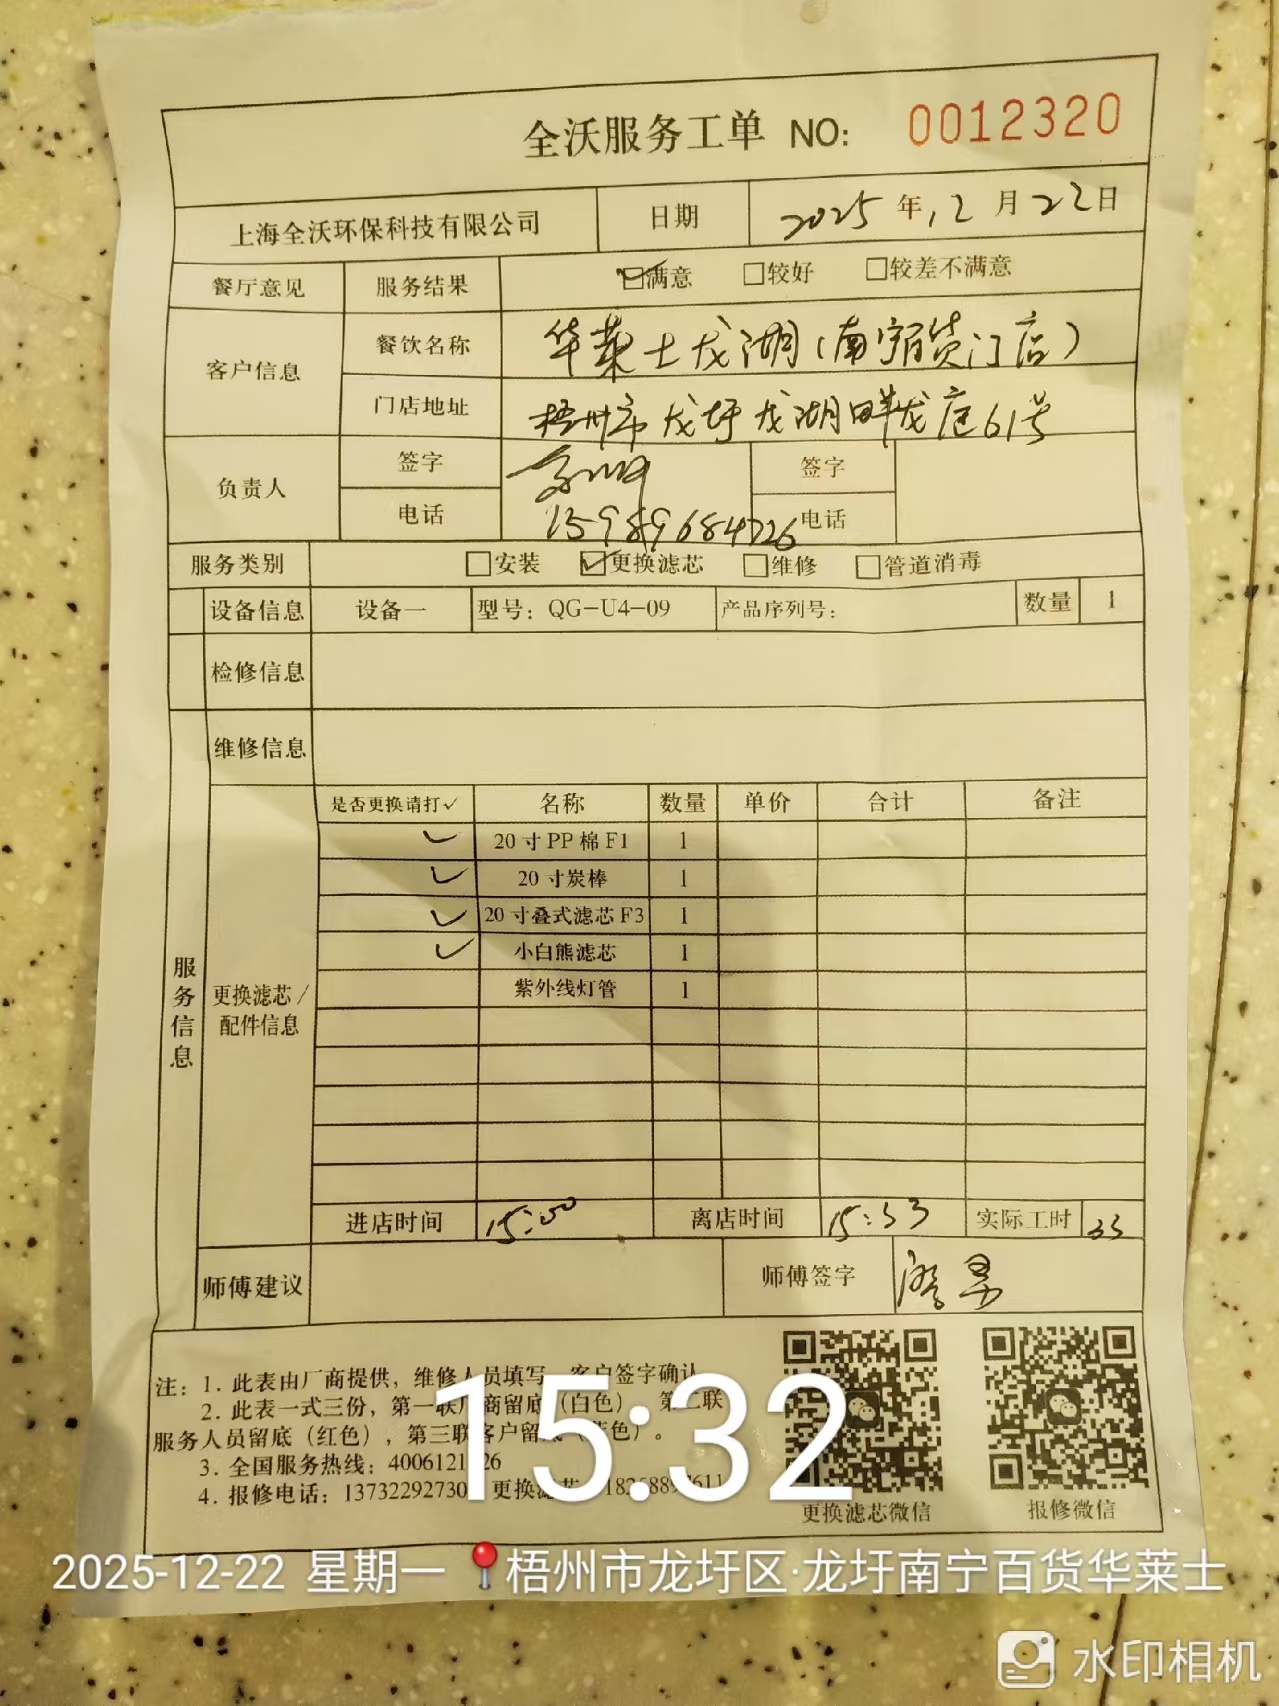 全沃服务工单 NO: 0012320
上海全沃环保科技有限公司 日期 2025年12月22日
餐厅意见 服务结果 ☑满意 □较好 □较差不满意
客户信息 餐饮名称 华莱士龙湖(南宁百货门店)
门店地址 梧州市龙圩龙湖畔龙庭61号
负责人 签字 签字
电话 15989684726 电话
服务类别 □安装 ☑更换滤芯 □维修 □管道消毒
设备信息 设备一 型号: QG-U4-09 产品序列号: 数量 1
检修信息
维修信息
服务信息
更换滤芯/
配件信息
是否更换请打✓ 名称 数量 单价 合计 备注
✓ 20寸PP棉F1 1
✓ 20寸炭棒 1
✓ 20寸叠式滤芯F3 1
✓ 小白熊滤芯 1
紫外线灯管 1
进店时间 15:00 离店时间 15:33 实际工时 33
师傅建议 师傅签字
注: 1. 此表由厂商提供, 维修人员填写, 客户签字确认
2. 此表一式三份, 第一联厂商留底 (白色) 第二联
服务人员留底 (红色), 第三联客户留底 色)。
3. 全国服务热线: 4006121 26
4. 报修电话: 13732292730 更换滤芯
更换滤芯微信 报修微信
15:32
2025-12-22 星期一 梧州市龙圩区·龙圩南宁百货华莱士
水印相机